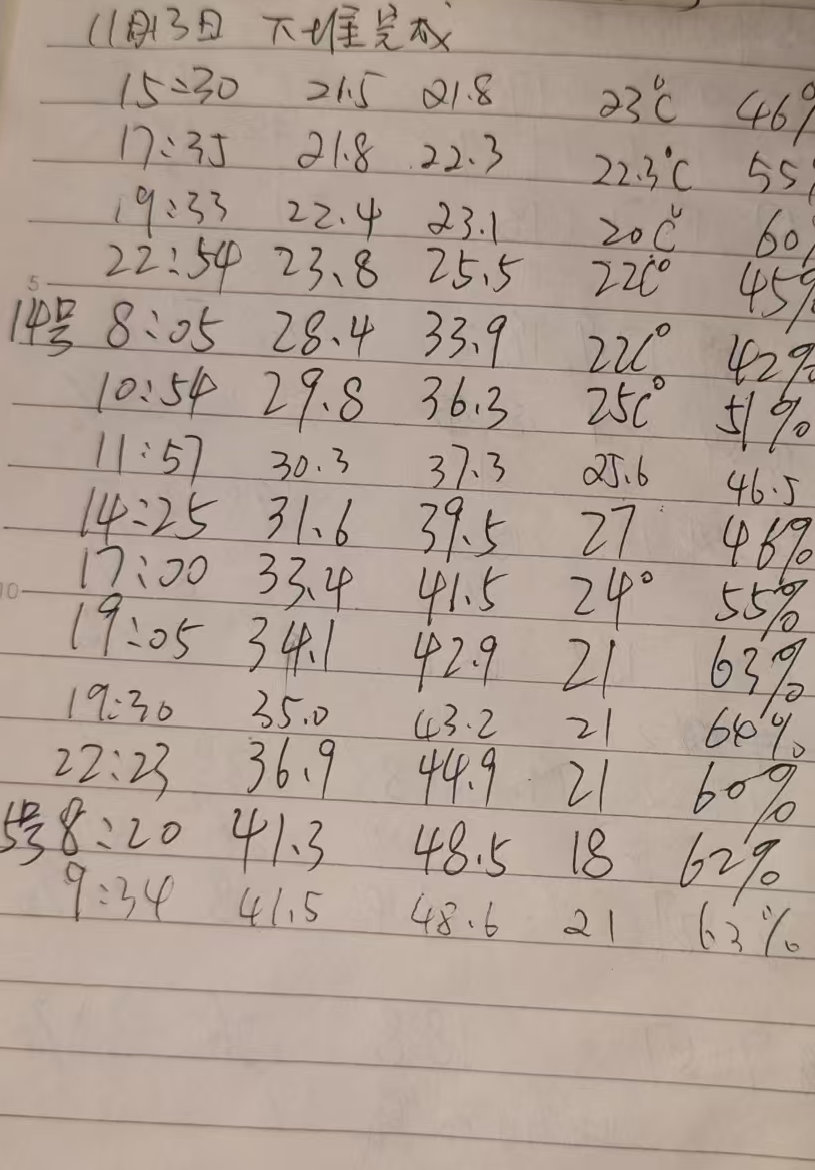 11月13日 下堆完成
15:30 21.5 21.8 23°C 46%
17:35 21.8 22.3 22.3°C 55%
19:33 22.4 23.1 20°C 60%
22:54 23.8 25.5 22C° 45%
14号 8:05 28.4 33.9 22C° 42%
10:54 29.8 36.3 25C° 51%
11:57 30.3 37.3 25.6 46.5
14:25 31.6 39.5 27 46%
17:00 33.4 41.5 24° 55%
19:05 34.1 42.9 21 63%
19:30 35.0 43.2 21 60%
22:23 36.9 44.9 21 60%
5号 8:20 41.3 48.5 18 62%
9:34 41.5 48.6 21 63%
5
10